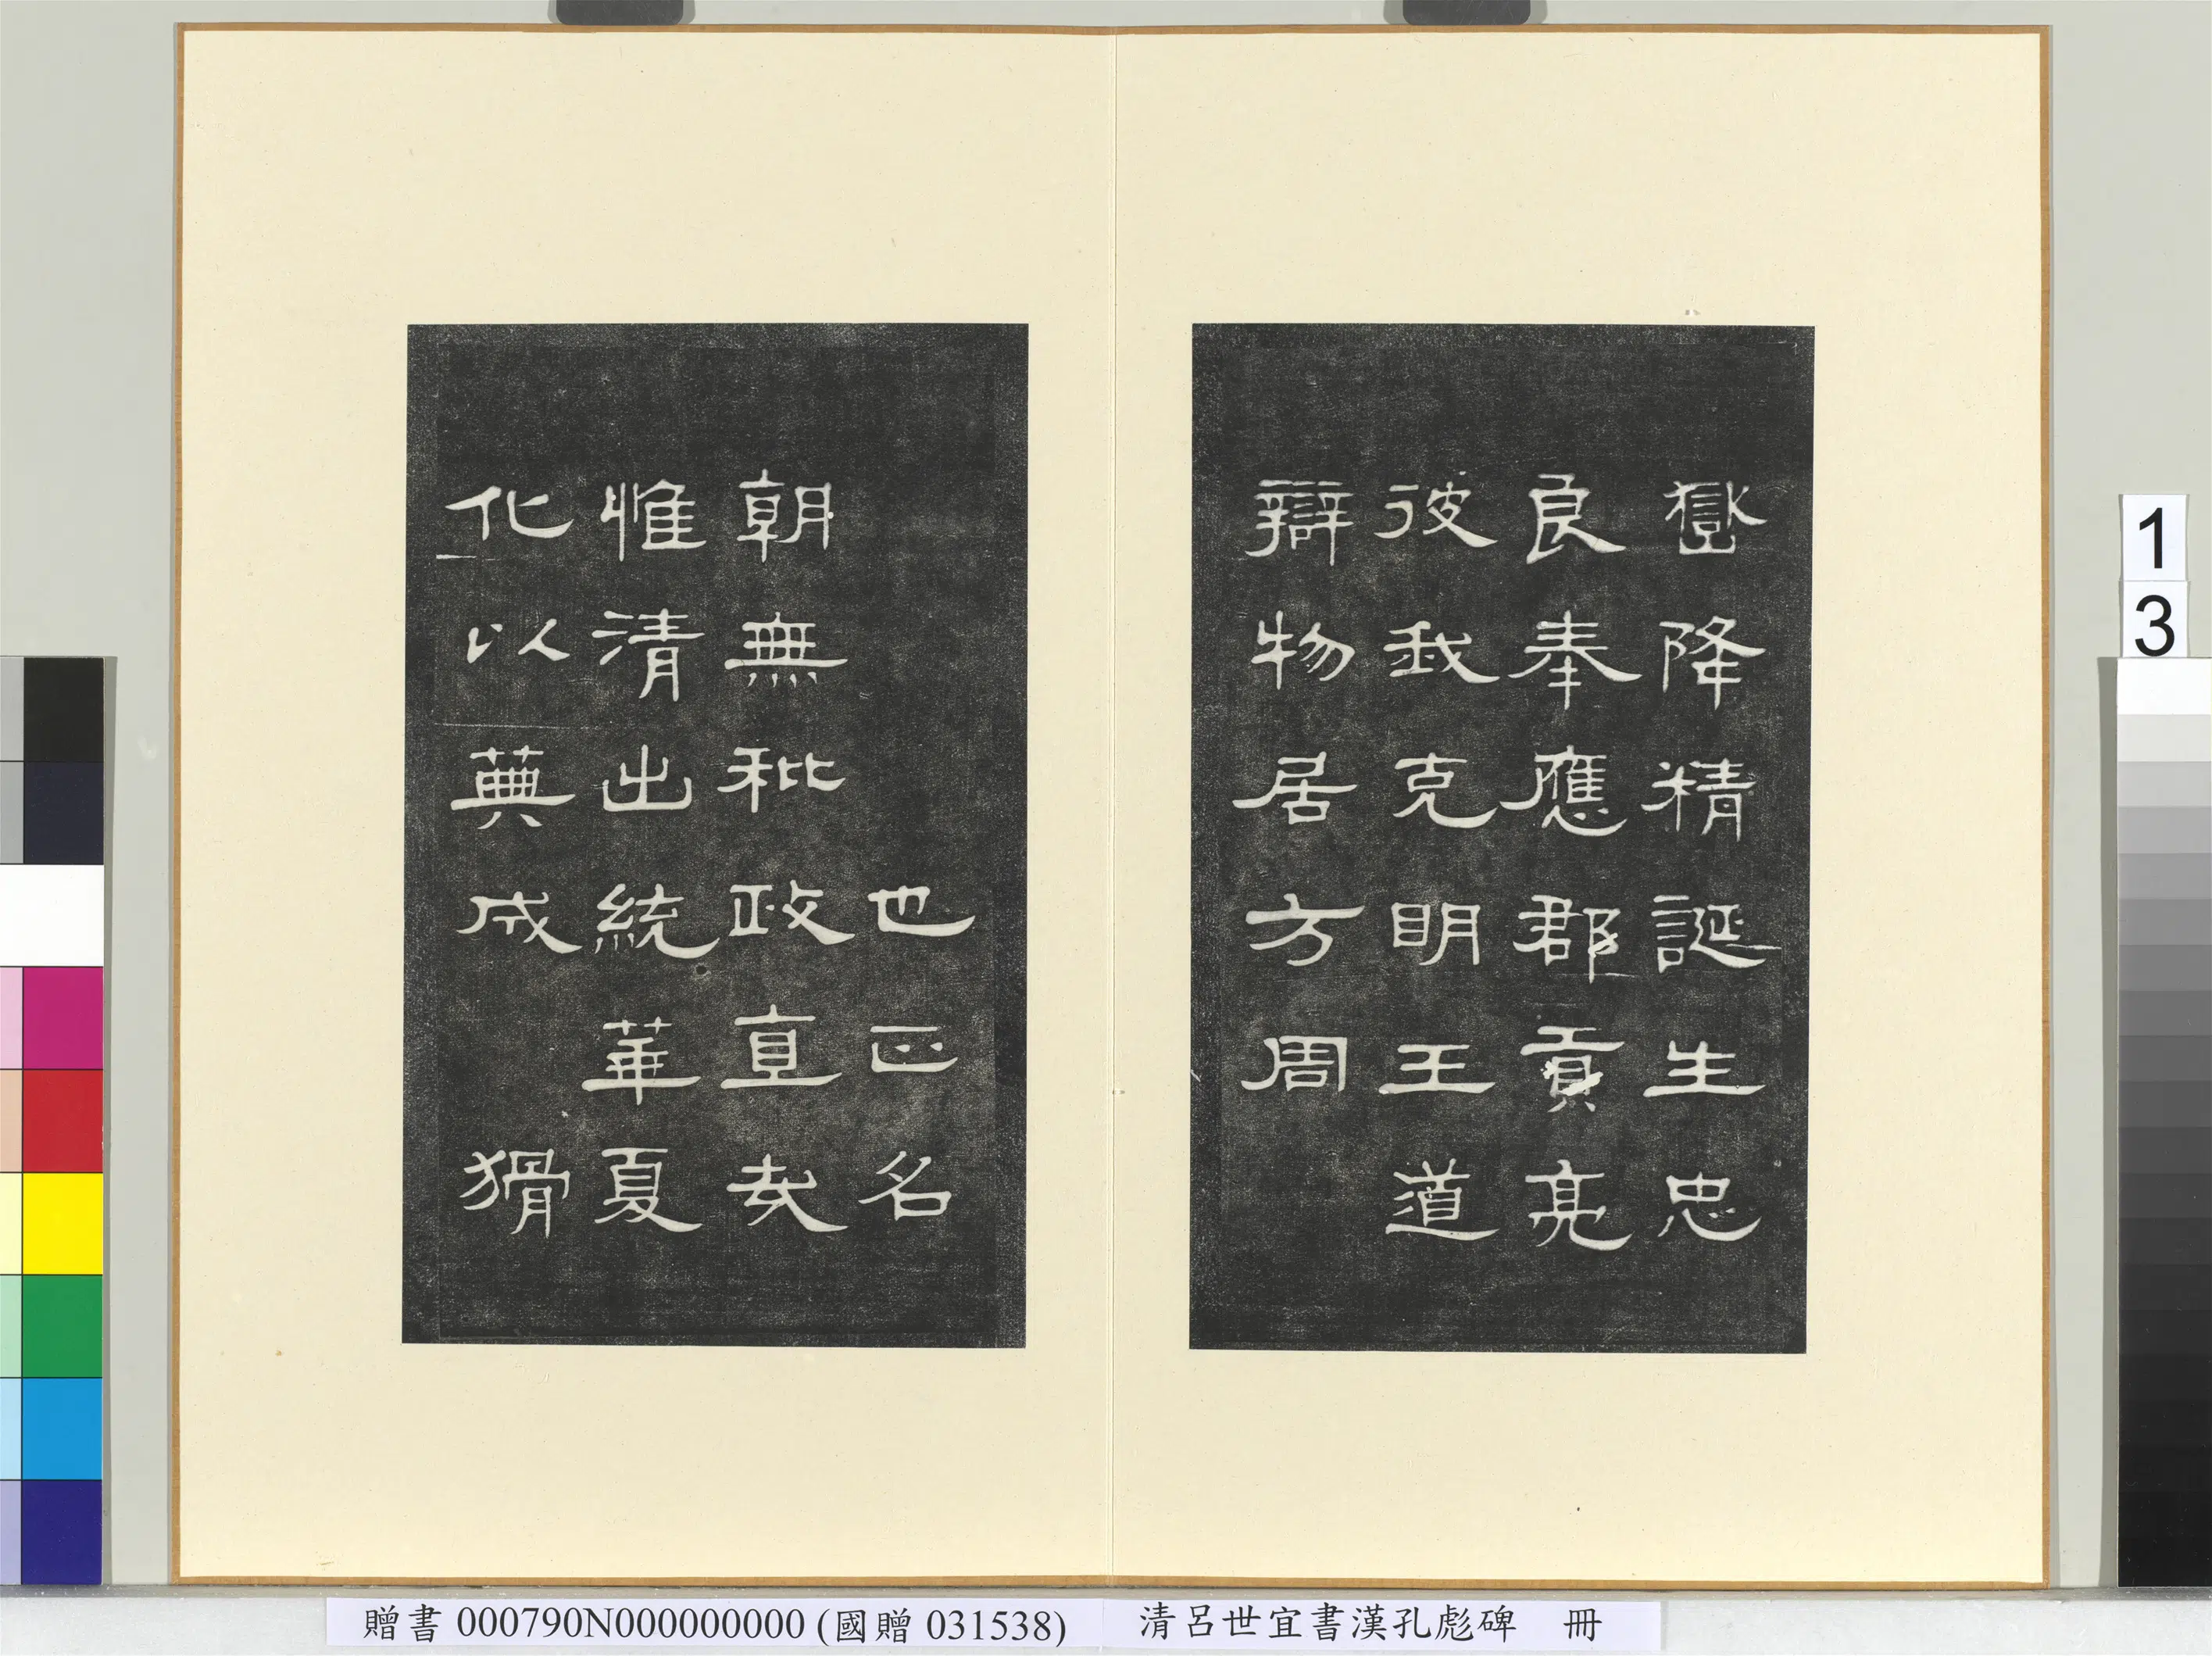 嶽降精誕生忠
良奉應郡貢亮
彼我克明王道
辯物居方周
也正名
朝無秕政直哉
惟清出統華夏
化以蕪成 猾
1
3
贈書 000790N000000000 (國贈 031538) 清呂世宜書漢孔彪碑 冊